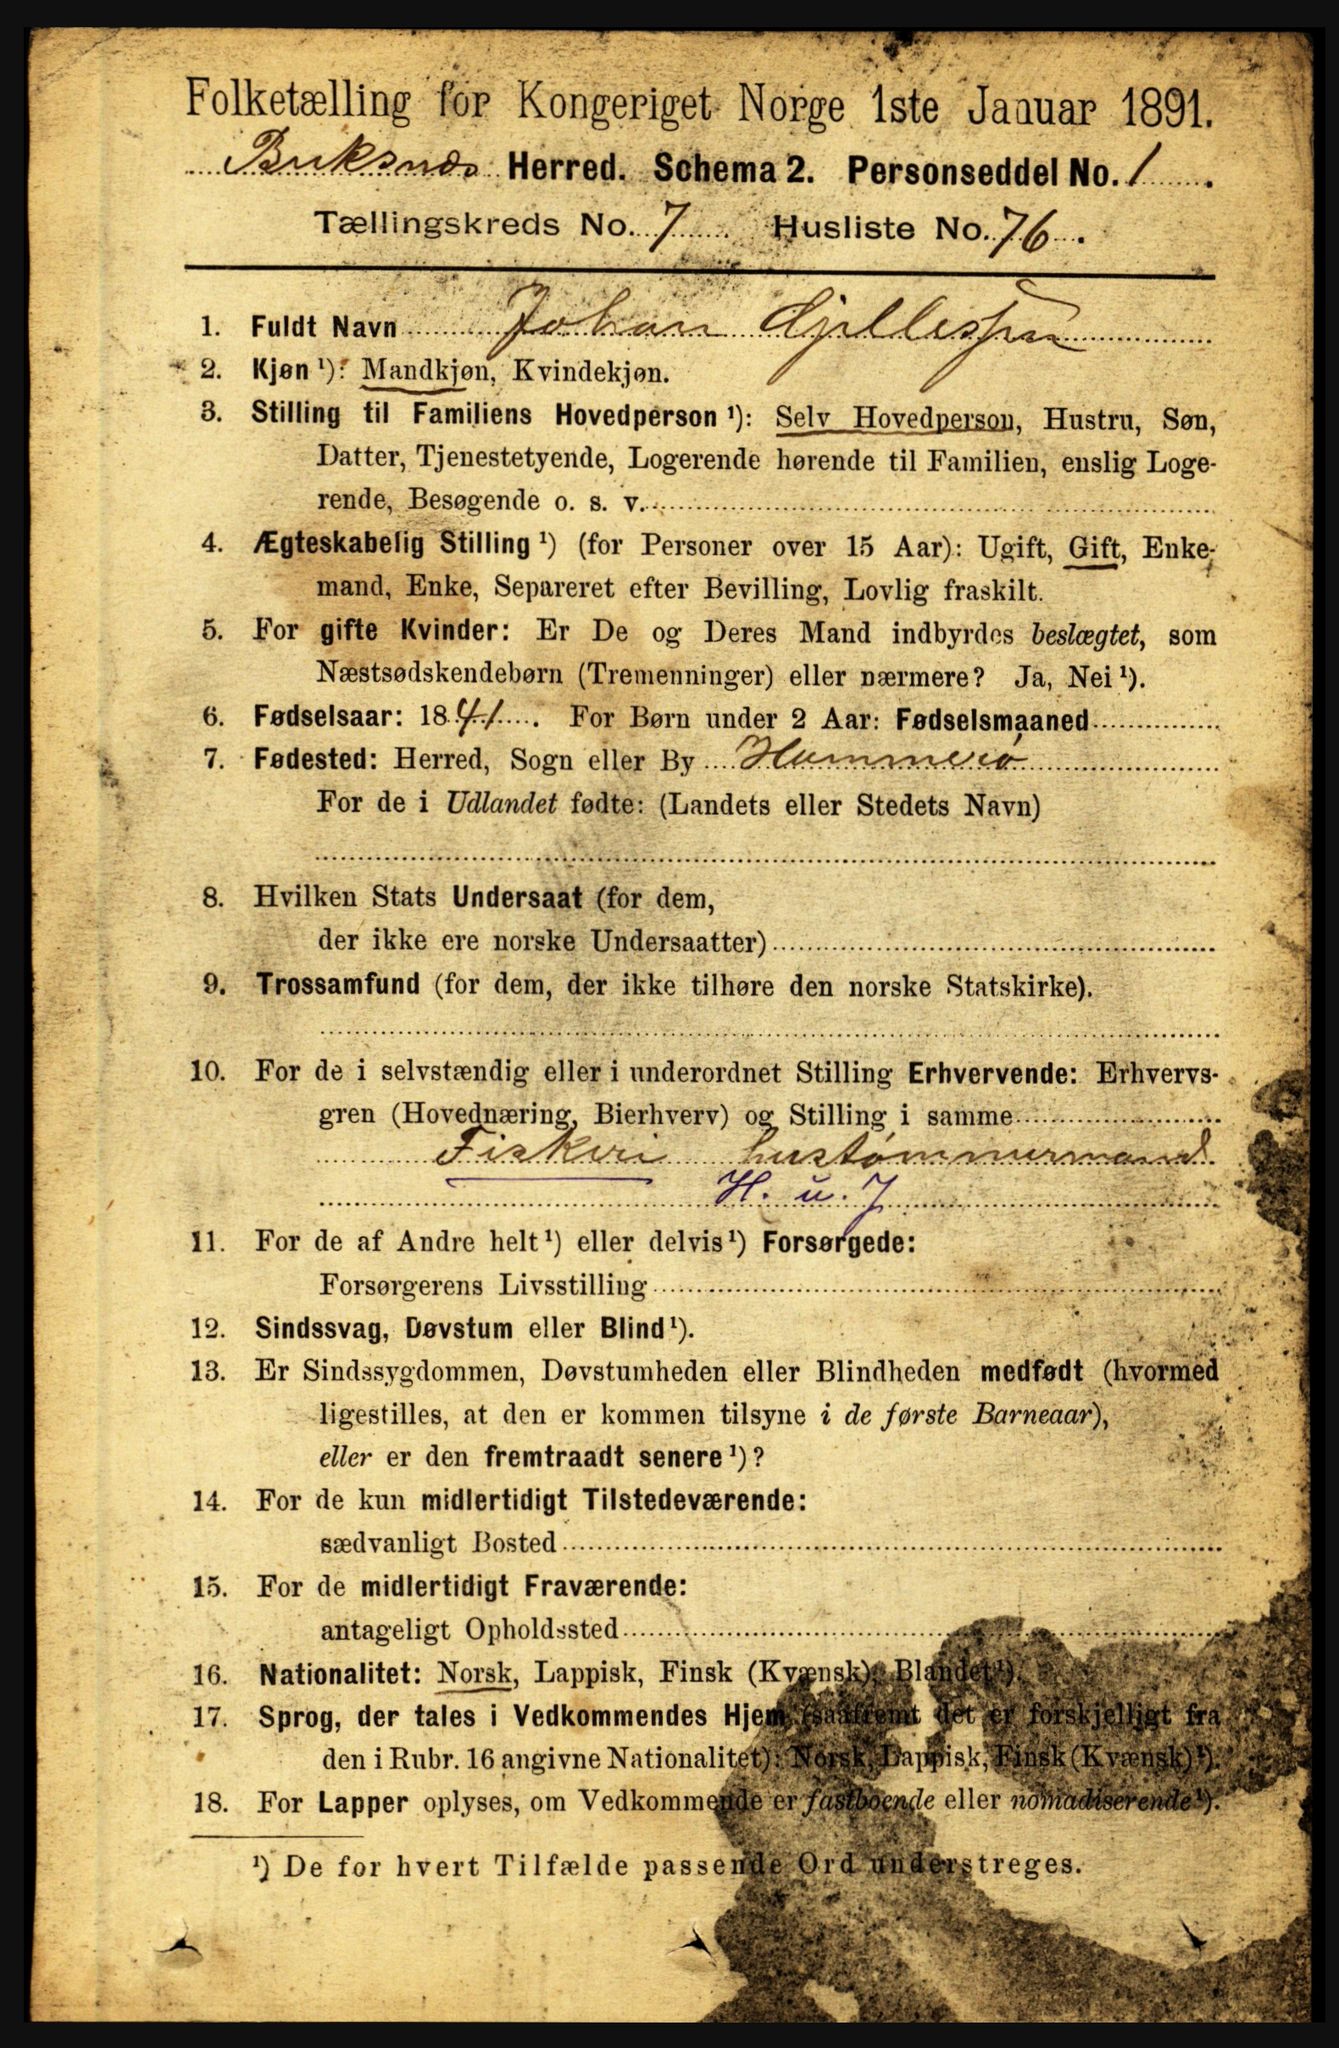 Folketælling for Kongeriget Norge 1ste Januar 1891.
Buksnæs Herred. Schema 2. Personseddel No. 1.
Tællingskreds No. 7. Husliste No. 76.
1. Fuldt Navn Johan
2. Kjøn ¹): Mandkjøn, Kvindekjøn.
3. Stilling til Familiens Hovedperson ¹): Selv Hovedperson, Hustru, Søn,
Datter, Tjenestetyende, Logerende hørende til Familien, enslig Loge-
rende, Besøgende o. s. v.
4. Ægteskabelig Stilling ¹) (for Personer over 15 Aar): Ugift, Gift, Enke-
mand, Enke, Separeret efter Bevilling, Lovlig fraskilt.
5. For gifte Kvinder: Er De og Deres Mand indbyrdes beslægtet, som
Næstsødskendebørn (Tremenninger) eller nærmere? Ja, Nei ¹).
6. Fødselsaar: 1841. For Børn under 2 Aar: Fødselsmaaned
7. Fødested: Herred, Sogn eller By Hammerø
For de i Udlandet fødte: (Landets eller Stedets Navn)
8. Hvilken Stats Undersaat (for dem,
der ikke ere norske Undersaatter)
9. Trossamfund (for dem, der ikke tilhøre den norske Statskirke).
10. For de i selvstændig eller i underordnet Stilling Erhvervende: Erhvervs-
gren (Hovednæring, Bierhverv) og Stilling i samme
Fiskeri hustømmermand
H. u. J
11. For de af Andre helt ¹) eller delvis ¹) Forsørgede:
Forsørgerens Livsstilling
12. Sindssvag, Døvstum eller Blind ¹).
13. Er Sindssygdommen, Døvstumheden eller Blindheden medfødt (hvormed
ligestilles, at den er kommen tilsyne i de første Barneaar),
eller er den fremtraadt senere ¹)?
14. For de kun midlertidigt Tilstedeværende:
sædvanligt Bosted
15. For de midlertidigt Fraværende:
antageligt Opholdssted
16. Nationalitet: Norsk, Lappisk, Finsk (Kvænsk), Blandet ¹).
17. Sprog, der tales i Vedkommendes Hjem (saafremt det er forskjelligt fra
den i Rubr. 16 angivne Nationalitet): Norsk, Lappisk, Finsk (Kvænsk) ¹).
18. For Lapper oplyses, om Vedkommende er fastboende eller nomadiserende ¹).
¹) De for hvert Tilfælde passende Ord understreges.